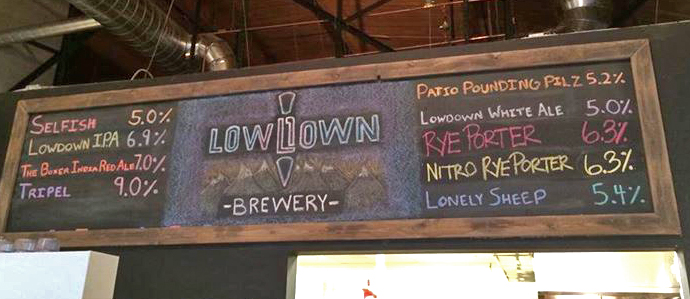 SELFISH 5.0%
LOWDOWN IPA 6.9%
THE BOXER INDIA RED ALE 7.0%
TRIPEL 9.0%
LOWDOWN
-BREWERY-
PATIO POUNDING PILZ 5.2%
LOWDOWN WHITE ALE 5.0%
RYE PORTER 6.3%
NITRO RYE PORTER 6.3%
LONELY SHEEP 5.4%